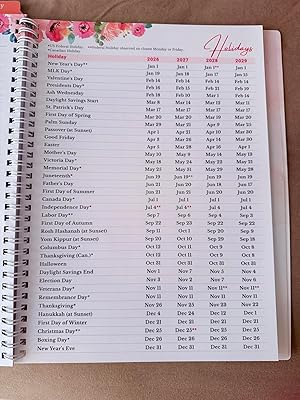 Holidays
*US Federal Holiday
*Canadian Holiday
Holiday 2026 2027 2028 2029
New Year's Day** Jan 1 Jan 1 Jan 1** Jan 1
MLK Day* Jan 19 Jan 18 Jan 17 Jan 15
Valentine's Day Feb 14 Feb 14 Feb 14 Feb 14
Presidents Day* Feb 16 Feb 15 Feb 21 Feb 19
Ash Wednesday Feb 18 Feb 10 Mar 1 Feb 14
Daylight Savings Start Mar 8 Mar 14 Mar 12 Mar 11
St. Patrick's Day Mar 17 Mar 17 Mar 17 Mar 17
First Day of Spring Mar 20 Mar 20 Mar 19 Mar 20
Palm Sunday Mar 29 Mar 21 Apr 9 Mar 25
Passover (at Sunset) Apr 1 Apr 21 Apr 10 Mar 30
Good Friday Apr 3 Mar 26 Apr 14 Mar 30
Easter Apr 5 Mar 28 Apr 16 Apr 1
Mother's Day May 10 May 9 May 14 May 13
Victoria Day* May 18 May 24 May 22 May 21
Memorial Day* May 25 May 31 May 29 May 28
Juneteenth* Jun 19 Jun 19** Jun 19 Jun 19
Father's Day Jun 21 Jun 20 Jun 18 Jun 17
First Day of Summer Jun 21 Jun 21 Jun 20 Jun 20
Canada Day* Jul 1 Jul 1 Jul 1 Jul 1
Independence Day* Jul 4** Jul 4** Jul 4 Jul 4
Labor Day** Sep 7 Sep 6 Sep 4 Sep 3
First Day of Autumn Sep 22 Sep 23 Sep 22 Sep 22
Rosh Hashanah (at Sunset) Sep 11 Oct 1 Sep 20 Sep 9
Yom Kippur (at Sunset) Sep 20 Oct 10 Sep 29 Sep 18
Columbus Day* Oct 12 Oct 11 Oct 9 Oct 8
Thanksgiving (Can.)* Oct 12 Oct 11 Oct 9 Oct 8
Halloween Oct 31 Oct 31 Oct 31 Oct 31
Daylight Savings End Nov 1 Nov 7 Nov 5 Nov 4
Election Day Nov 3 Nov 2 Nov 7 Nov 6
Veterans Day* Nov 11 Nov 11 Nov 11** Nov 11**
Remembrance Day* Nov 11 Nov 11 Nov 11 Nov 11
Thanksgiving* Nov 26 Nov 25 Nov 23 Nov 22
Hanukkah (at Sunset) Dec 4 Dec 24 Dec 12 Dec 1
First Day of Winter Dec 21 Dec 21 Dec 21 Dec 21
Christmas Day** Dec 25 Dec 25** Dec 25 Dec 25
Boxing Day* Dec 26 Dec 26 Dec 26 Dec 26
New Year's Eve Dec 31 Dec 31 Dec 31 Dec 31